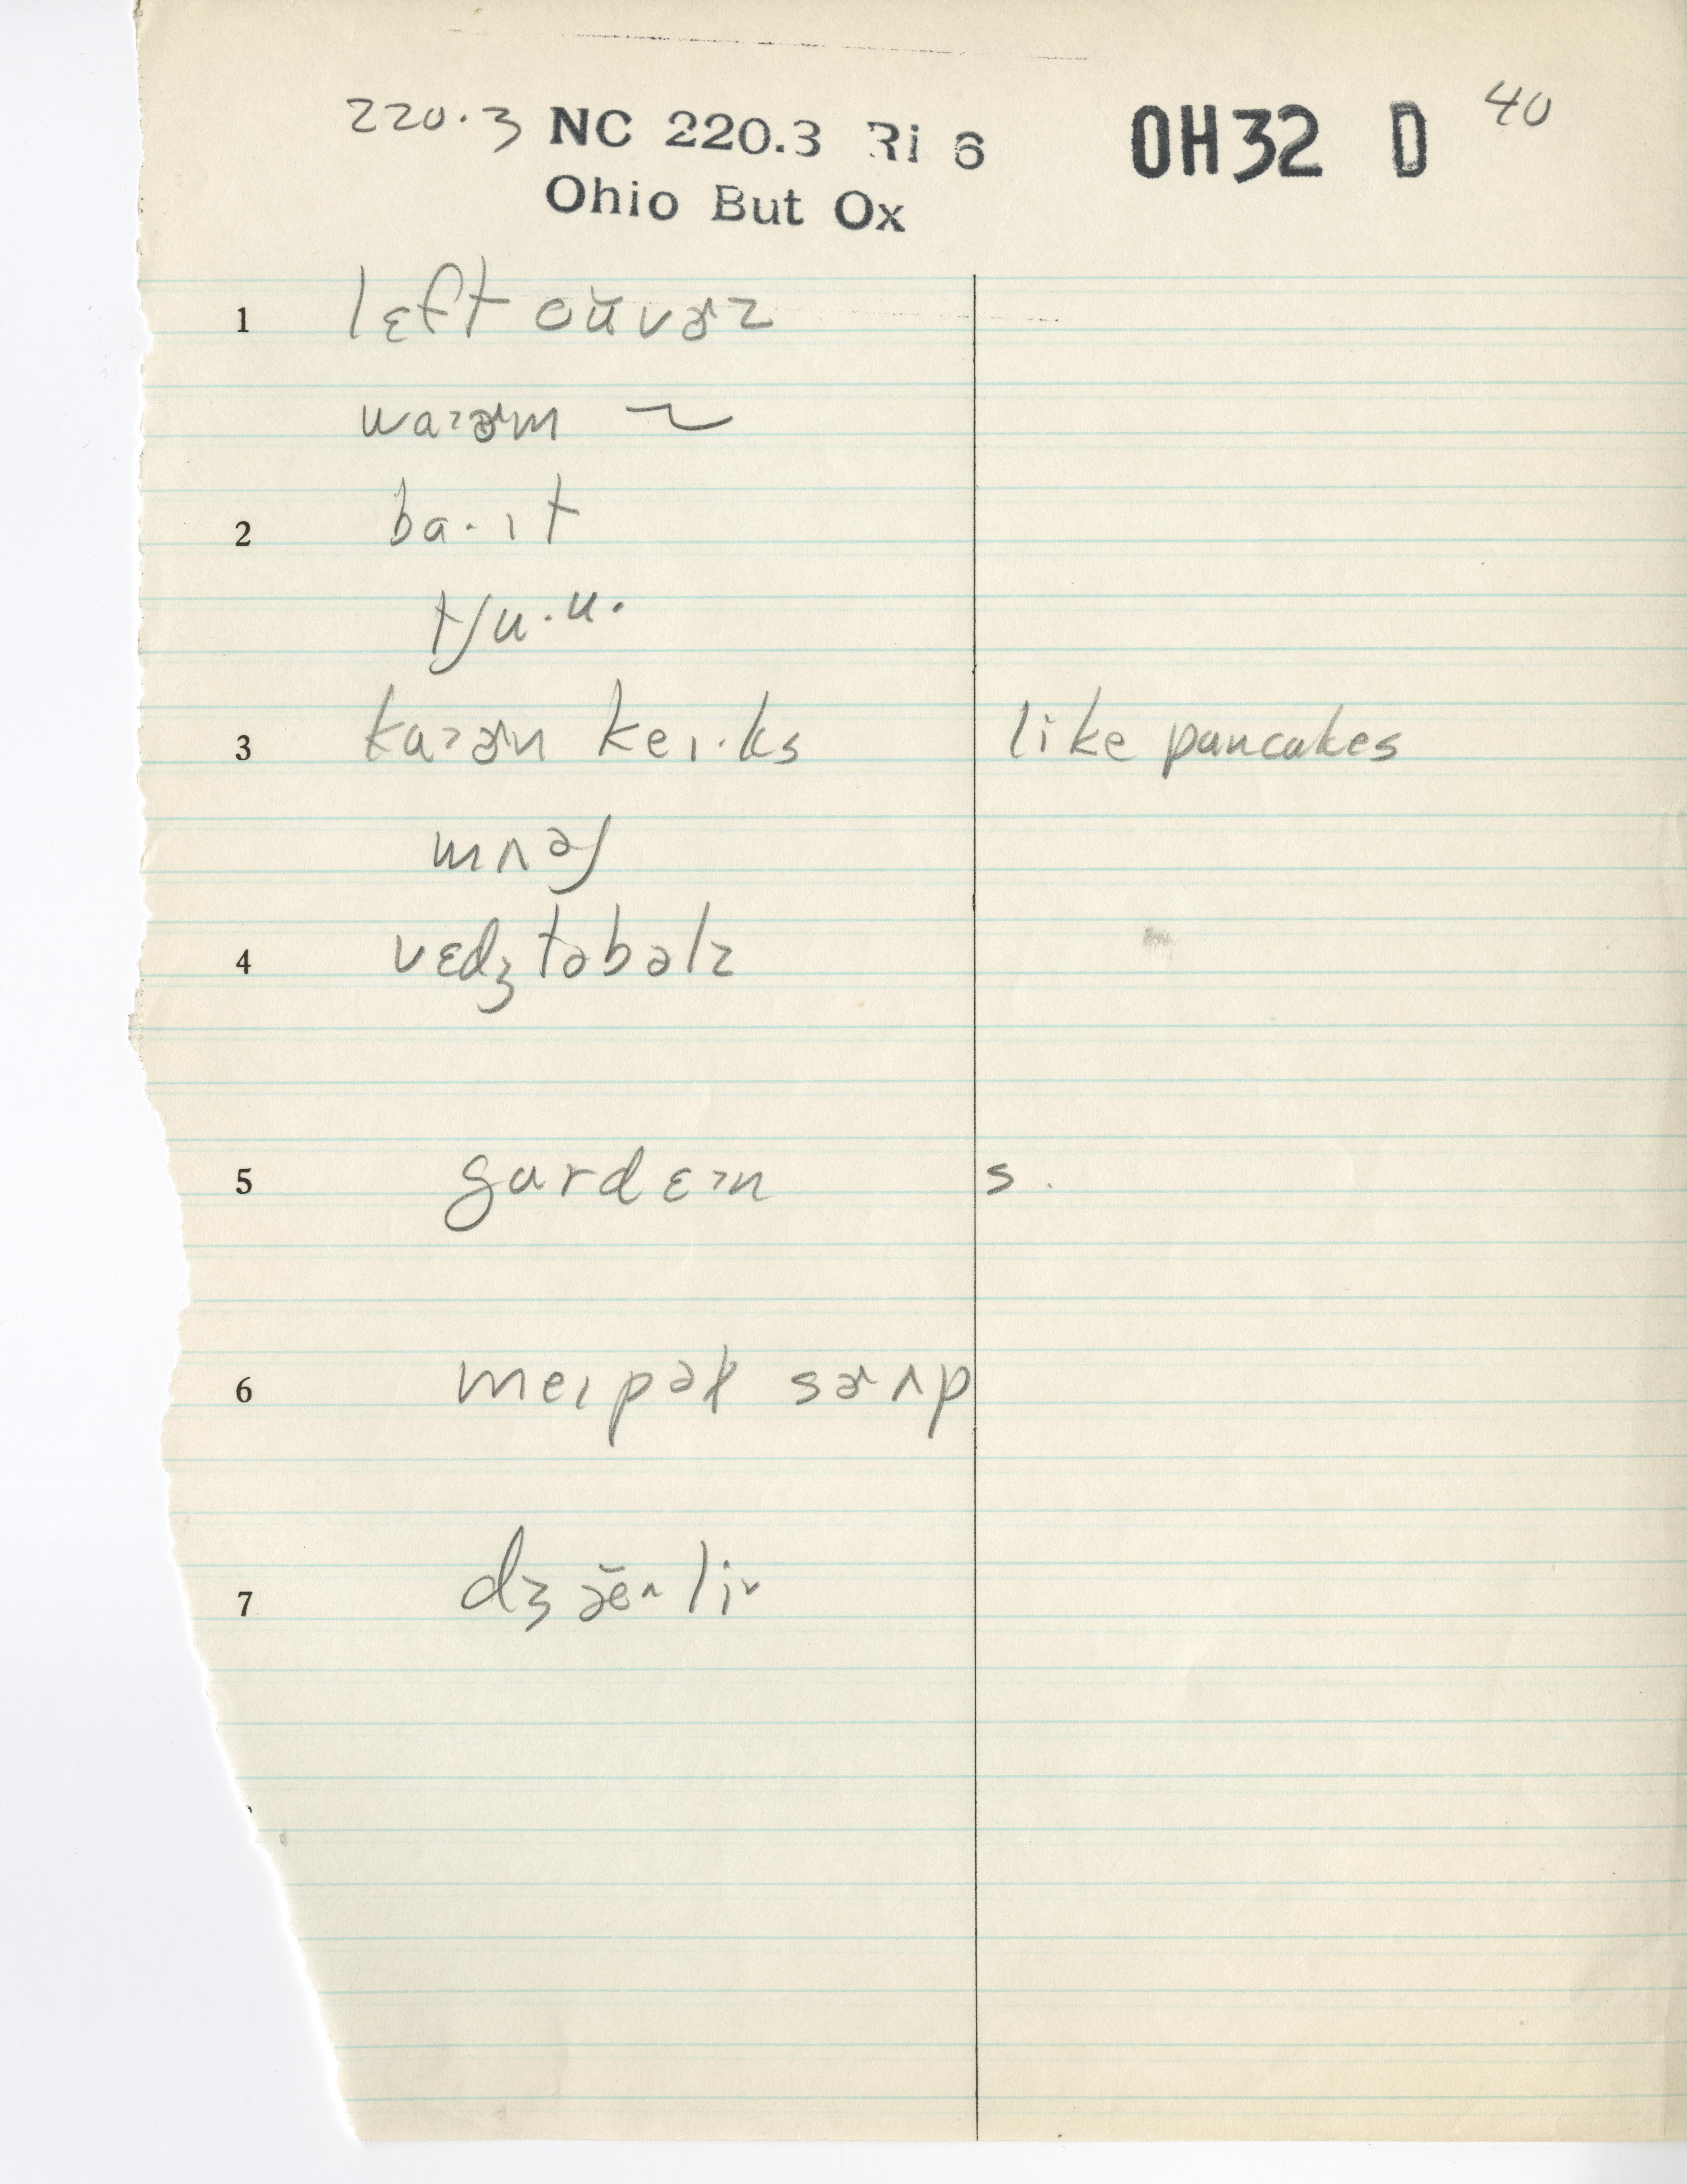 220.3 NC 220.3 Ri 6 OH32 D 40
Ohio But Ox
1 lɛft oŭvɚz
waɹɚm ~
2 ba·ɪt
tʃu·u·
3 kaɹɚn keɪ·ks like pancakes
mʌəʃ
4 vɛdʒtəbəlz
5 gardɛɹn s.
6 meɪpəɫ sɚʌp
7